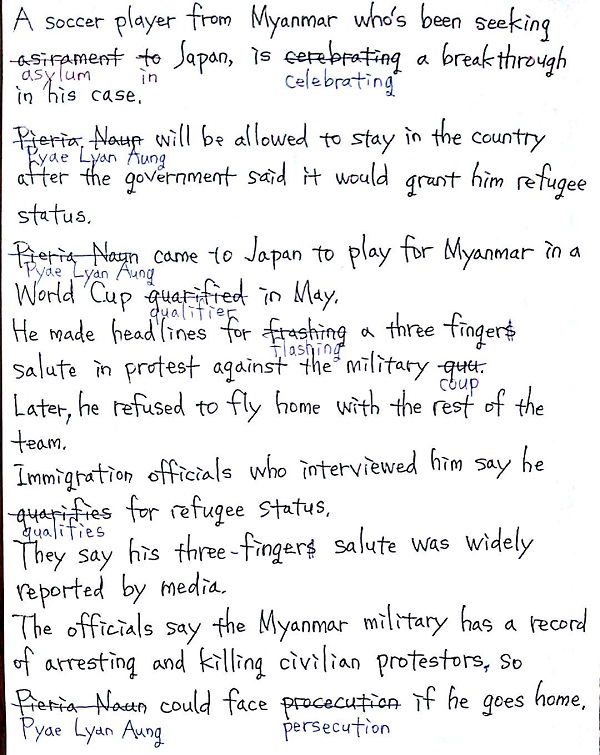 A soccer player from Myanmar who's been seeking
asirament to Japan, is cerebrating a breakthrough
asylum in celebrating
in his case.
Pieria Naun will be allowed to stay in the country
Pyae Lyan Aung
after the government said it would grant him refugee
status.
Pieria Naun came to Japan to play for Myanmar in a
Pyae Lyan Aung
World Cup quarified in May.
qualifier
He made headlines for frashing a three fingers
flashing
salute in protest against the military quu.
coup
Later, he refused to fly home with the rest of the
team.
Immigration officials who interviewed him say he
quarifies for refugee status.
qualifies
They say his three-fingers salute was widely
reported by media.
The officials say the Myanmar military has a record
of arresting and killing civilian protestors, so
Pieria Naun could face procecution if he goes home.
Pyae Lyan Aung persecution